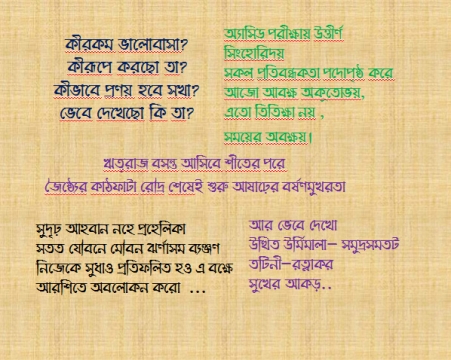 কীরকম ভালোবাসা?
কীরূপে করছো তা?
কীভাবে প্রণয় হবে সখা?
ভেবে দেখেছো কি তা?
অ্যাসিড পরীক্ষায় উত্তীর্ণ
সিংহোরিদয়
সকল প্রতিবন্ধকতা পদোপৃষ্ঠ করে
আজো আবক্ষ অকুতোভয়,
এতো তিতিক্ষা নয় ,
সময়ের অবক্ষয়।
ঋতুরাজ বসন্ত আসিবে শীতের পরে
জৈষ্ঠের কাঠফাটা রোদ্রি শেষেই শুরু আষাঢ়ের বর্ষণমুখরতা
সুদৃঢ় আহবান নহে প্রহেলিকা
সতত যৌবনে মৌবন ঝর্ণাসম ব্যঞ্জণ
নিজেকে সুধাও প্রতিফলিত হও এ বক্ষে
আরশিতে অবলোকন করো ...
আর ভেবে দেখো
উত্থিত উর্মিমালা– সমুদ্রসমতট
তটিনী–রত্নাকর
সুখের আকড়..